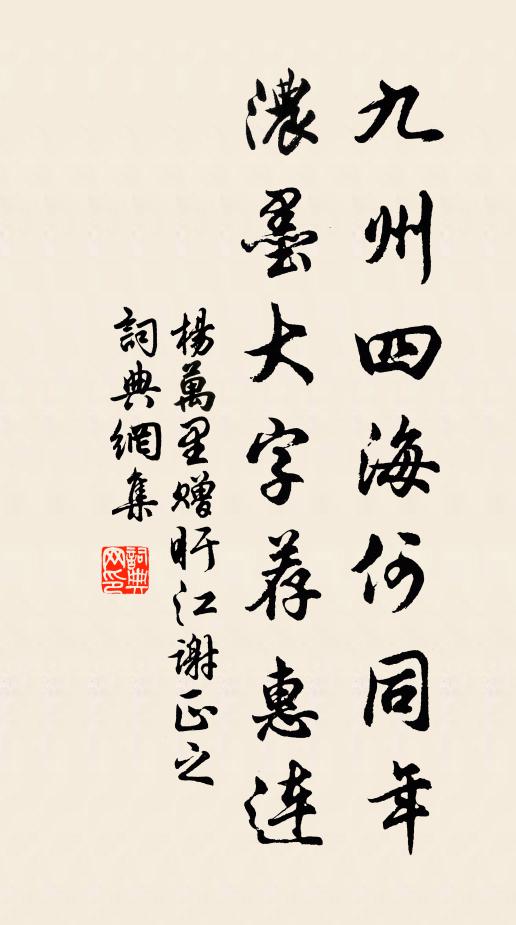 九州四海何同年
濃墨大字荐惠連
楊萬里赠盱江謝正之
詞典網集
詞典网印